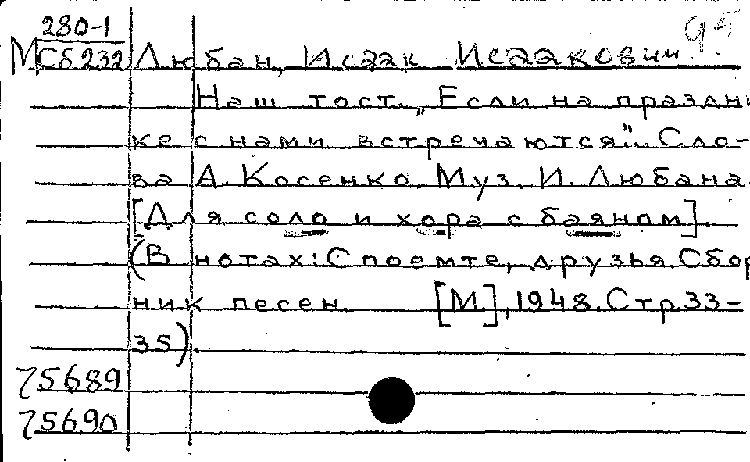 280-1
М Сб.232 Любан, Исаак Исаакович.
Наш тост. „Если на праздни
ке с нами встречаются". Сло-
ва А. Косенко. Муз. И. Любана.
[Для соло и хора с баяном].
(В нотах: Споемте, друзья. Сбор
ник песен [М], 1948. Стр. 33-
35).
75689
75690